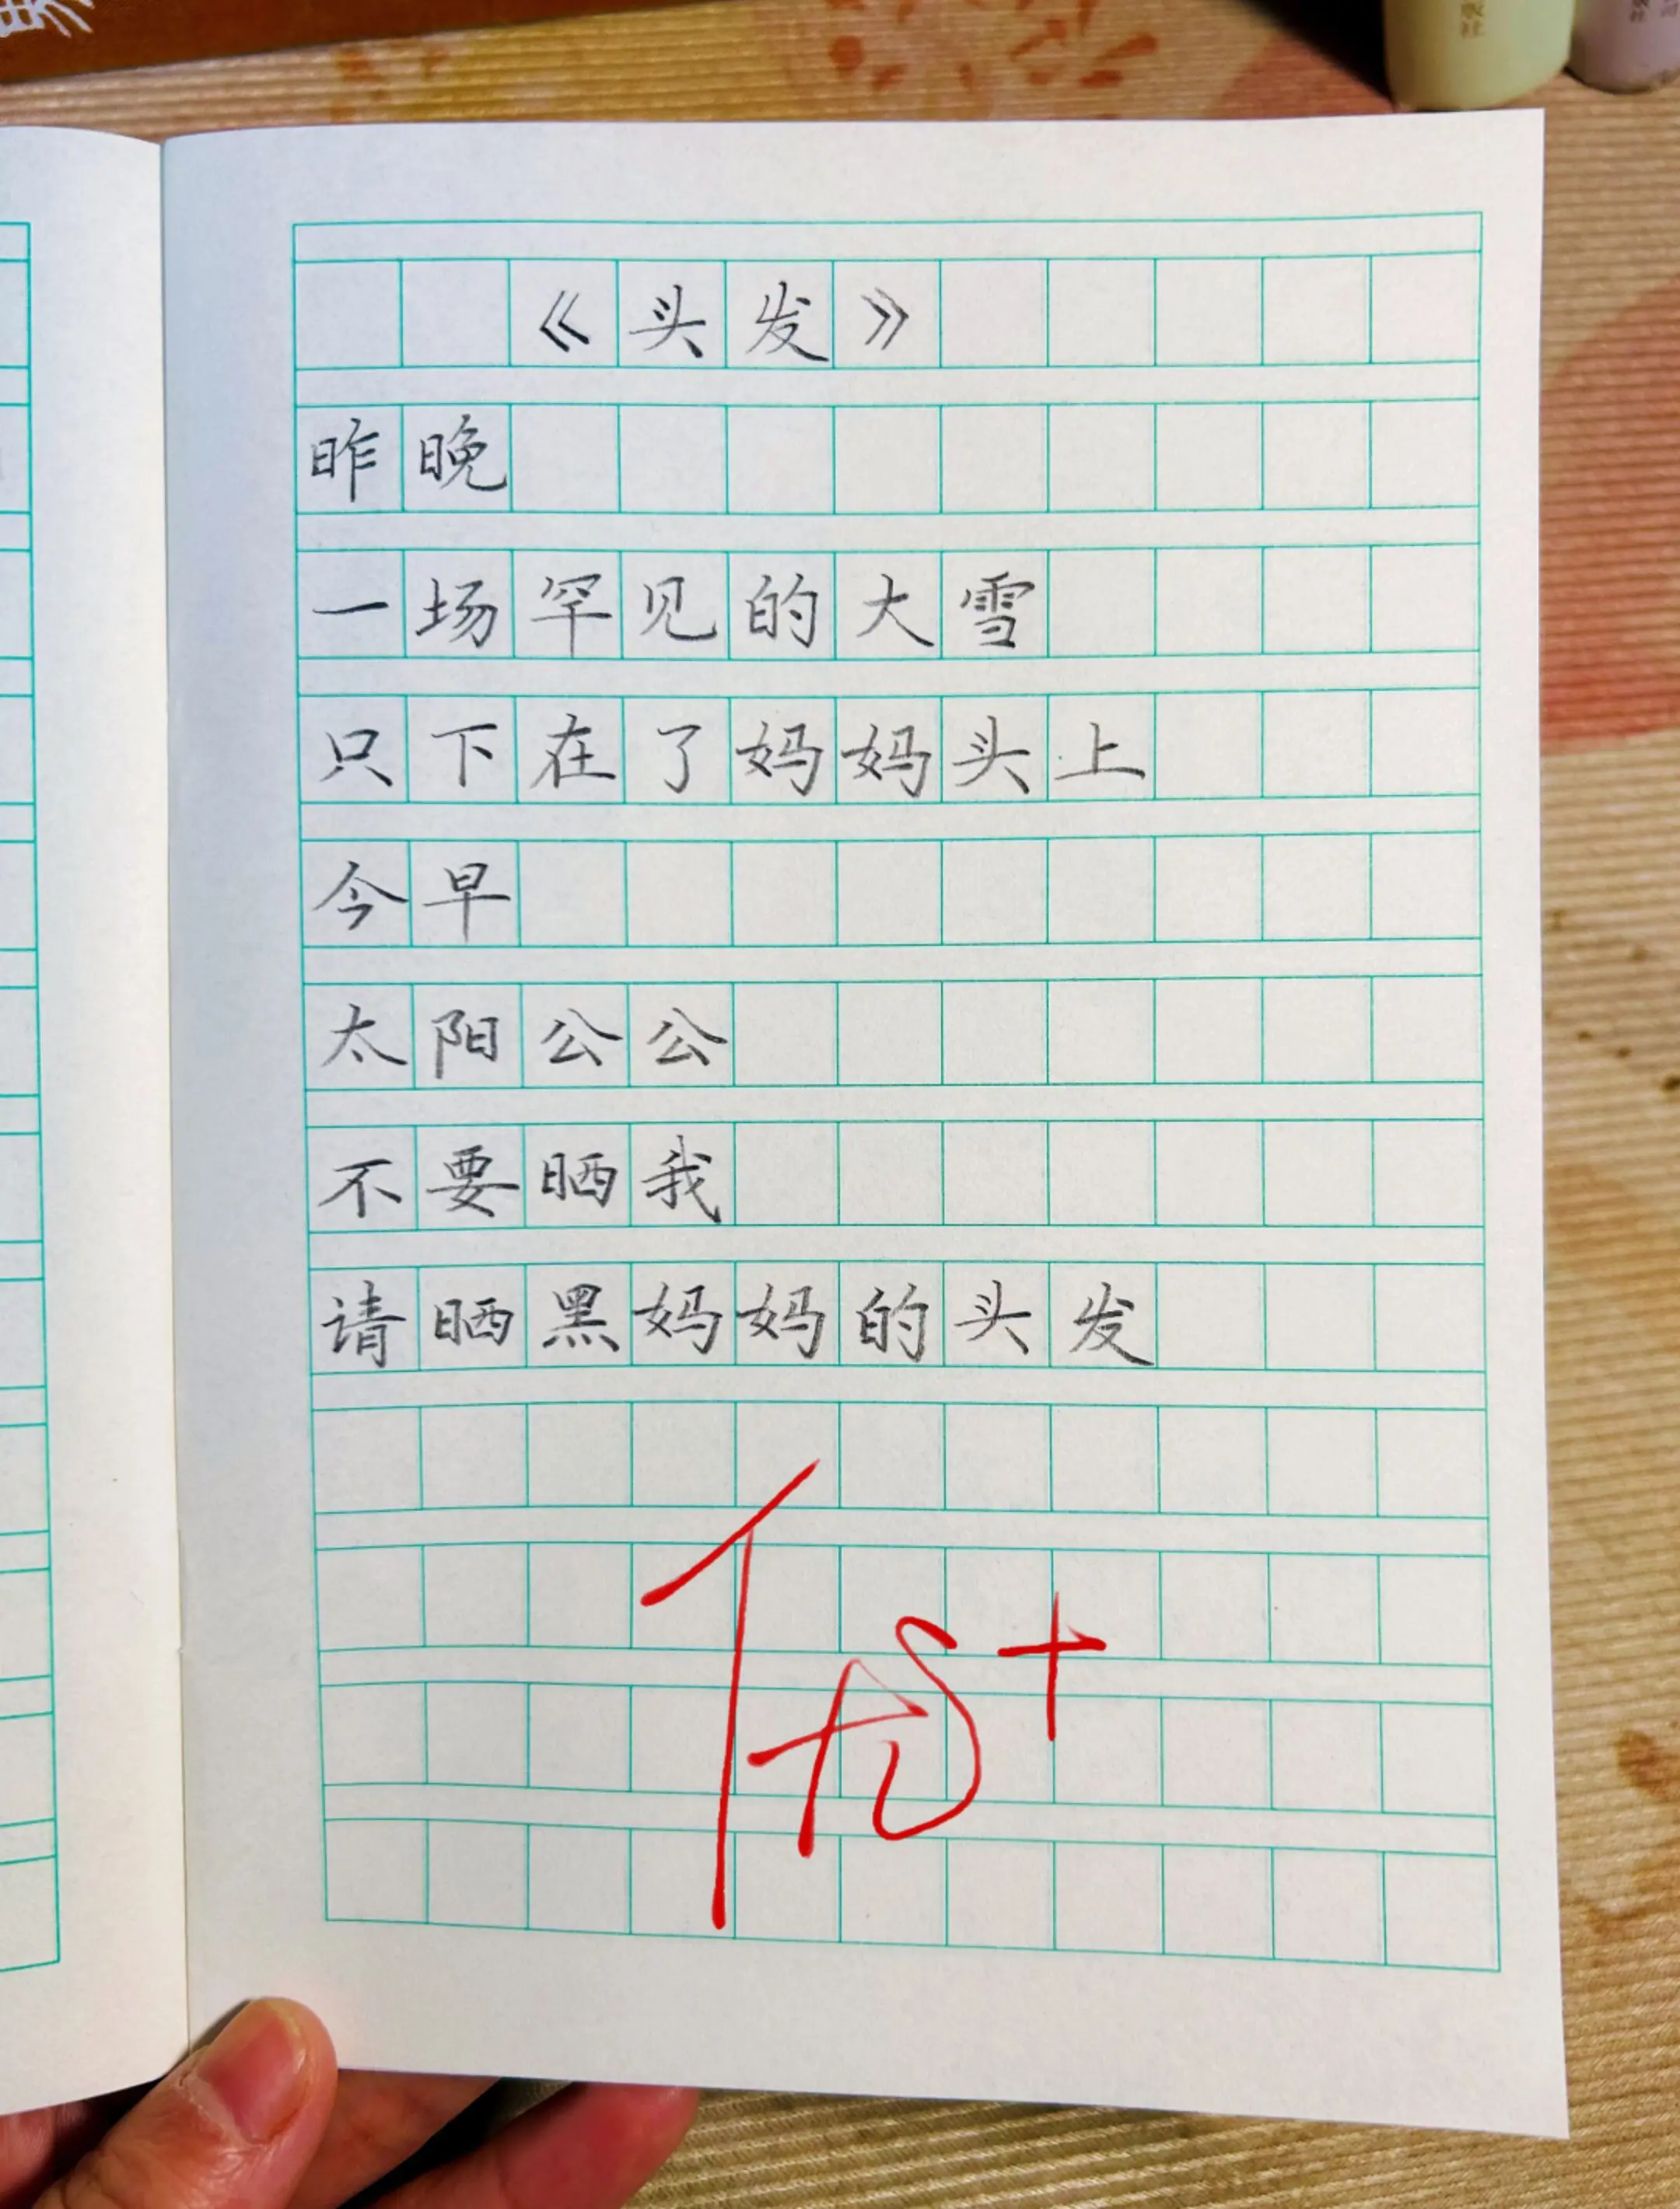 《头发》
昨晚
一场罕见的大雪
只下在了妈妈头上
今早
太阳公公
不要晒我
请晒黑妈妈的头发
优+